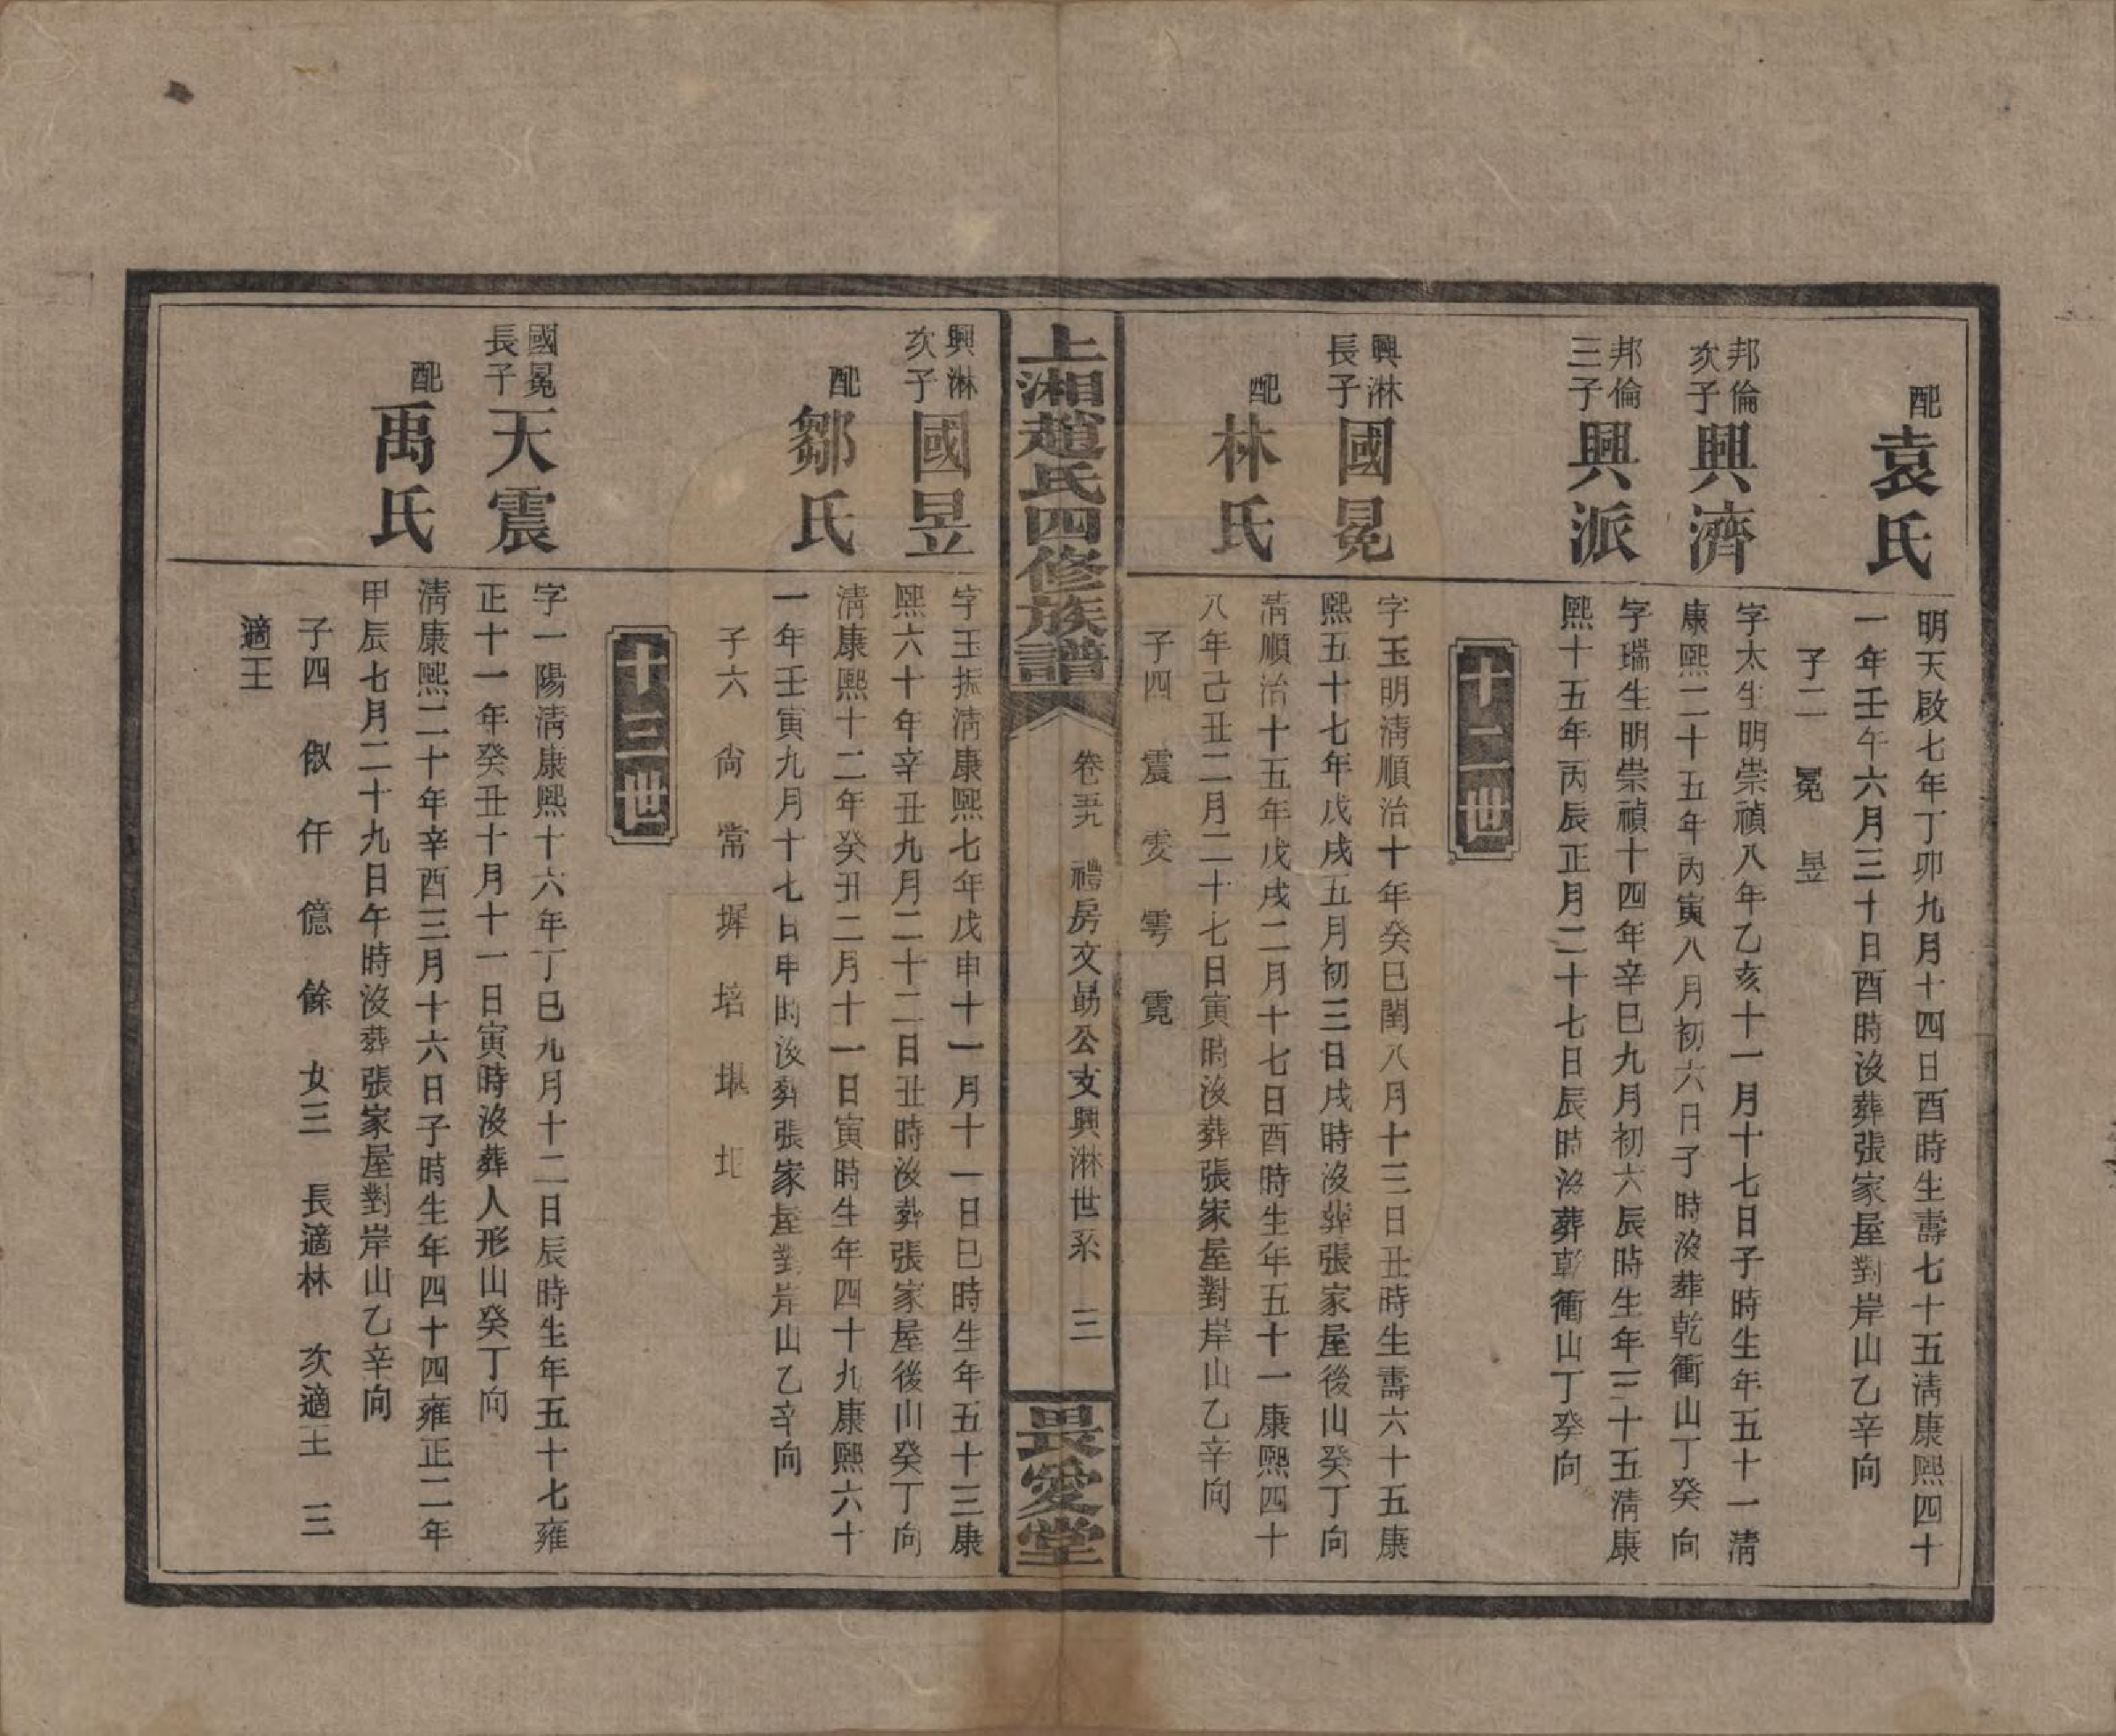 配
袁氏
明天啟七年丁卯九月十四日酉時生壽七十五淸康熙四十
一年壬午六月三十日酉時沒葬張家屋對岸山乙辛向
子二　冕　昱
邦倫
次子
興濟
字太生明崇禎八年乙亥十一月十七日子時生年五十一淸
康熙二十五年丙寅八月初六日子時沒葬乾衝山丁癸向
邦倫
三子
興派
字瑞生明崇禎十四年辛巳九月初六辰時生年三十五淸康
熙十五年丙辰正月二十七日辰時沒葬乾衝山丁癸向
十二世
興淋
長子
國冕
字玉明淸順治十年癸巳閏八月十三日丑時生壽六十五康
熙五十七年戊戌五月初三日戌時沒葬張家屋後山癸丁向
配
林氏
淸順治十五年戊戌二月十七日酉時生年五十一康熙四十
八年己丑二月二十七日寅時沒葬張家屋對岸山乙辛向
子四　震　雯　雩　霓
上湘趙氏四修族譜
卷五　禮房文勗公支興淋世系　三
畏愛堂
興淋
次子
國昱
字玉振淸康熙七年戊申十一月十一日巳時生年五十三康
熙六十年辛丑九月二十二日丑時沒葬張家屋後山癸丁向
配
鄒氏
淸康熙十二年癸丑二月十一日寅時生年四十九康熙六十
一年壬寅九月十七日申時沒葬張家屋對岸山乙辛向
子六　尙　常　墀　培　　圯
十三世
國冕
長子
天震
字一陽淸康熙十六年丁巳九月十二日辰時生年五十七雍
正十一年癸丑十月十一日寅時沒葬人形山癸丁向
配
禹氏
淸康熙二十年辛酉三月十六日子時生年四十四雍正二年
甲辰七月二十九日午時沒葬張家屋對岸山乙辛向
子四　俶　仟　億　餘　女三　長適林　次適王　三
適王